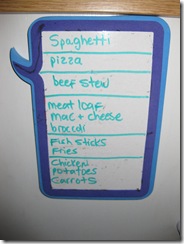 Spaghetti
pizza
beef stew
meat loaf
mac + cheese
broccoli
Fish sticks
Fries
Chicken
potatoes
Carrots